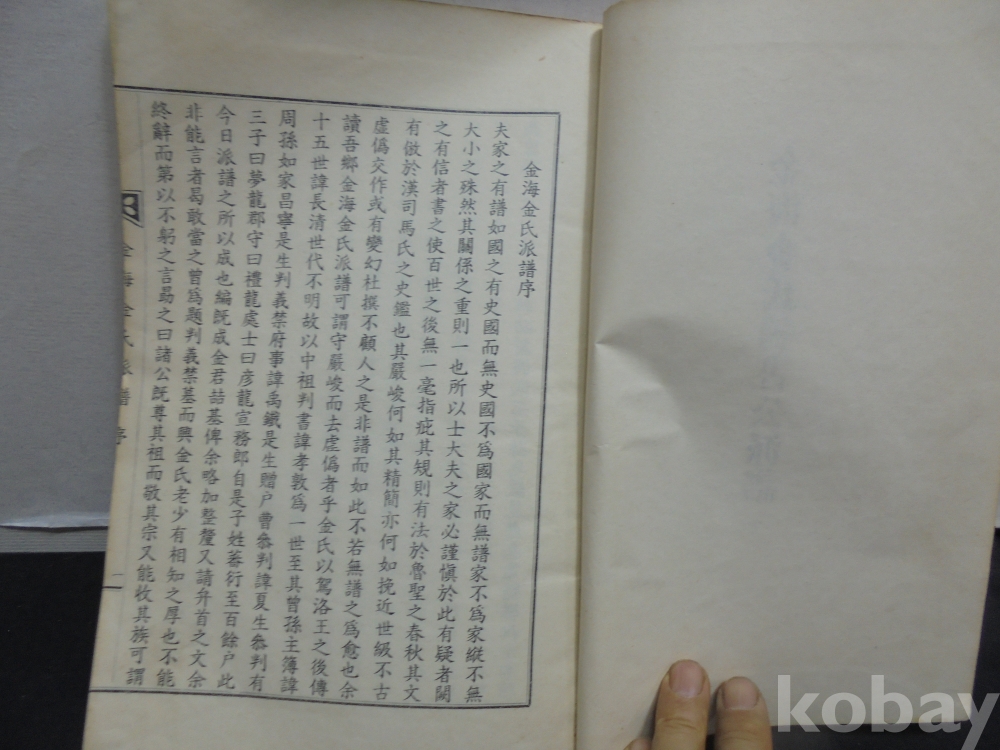 金海金氏派譜序
夫家之有譜如國之有史國而無史國不爲國家而無譜家不爲家縱不無
大小之殊然其關係之重則一也所以士大夫之家必謹愼於此有疑者闕
之有信者書之使百世之後無一毫指疵其規則有法於魯聖之春秋其文
有倣於漢司馬氏之史鑑也其嚴峻何如其精簡亦何如挽近世級不古
虛僞交作或有變幻杜撰不顧人之是非譜而如此不若無譜之爲愈也余
讀吾鄕金海金氏派譜可謂守嚴峻而去虛僞者乎金氏以駕洛王之後傳
十五世諱長淸世代不明故以中祖判書諱孝敦爲一世至其曾孫主簿諱
周孫如家昌寧是生判義禁府事諱禹鐵是生贈戶曹參判諱夏生參判有
三子曰夢龍郡守曰禮龍處士曰彦龍宣務郞自是子姓蕃衍至百餘戶此
今日派譜之所以成也編旣成金君喆基俾余略加整釐又請弁首之文余
非能言者曷敢當之曾爲題判義禁墓而與金氏老少有相知之厚也不能
終辭而第以不躬之言勗之曰諸公旣尊其祖而敬其宗又能收其族可謂
金海金氏派譜 序
一
kobay